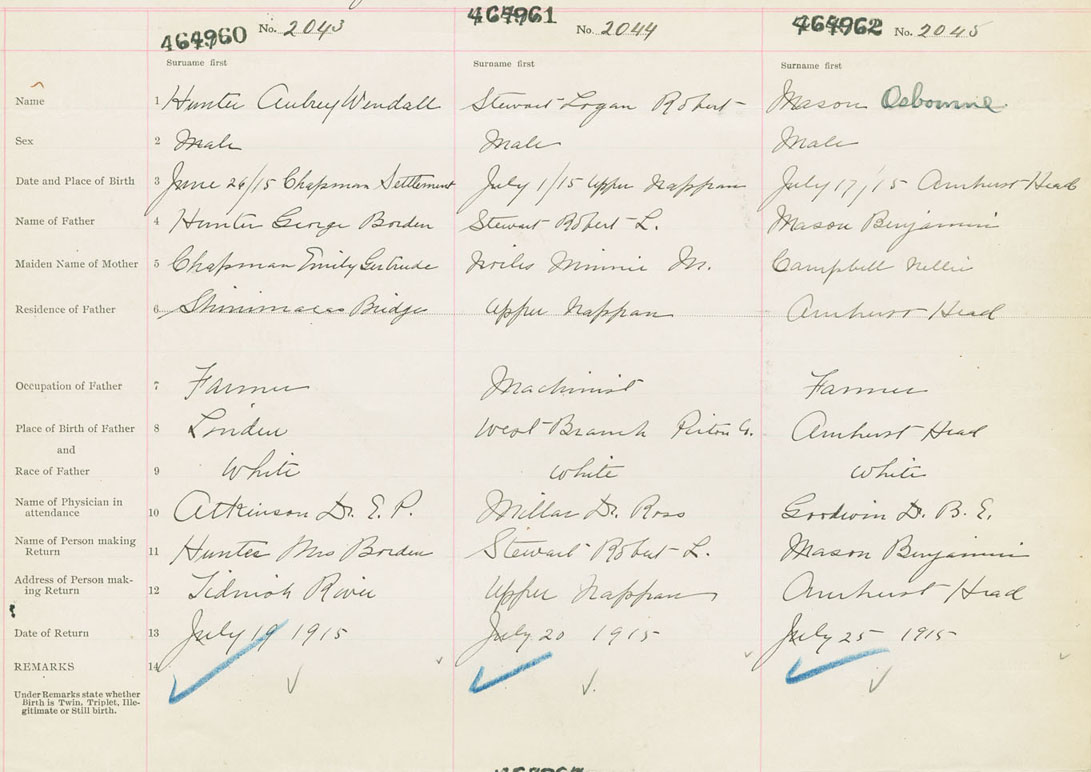 464960 No. 2043 464961 No. 2044 464962 No. 2045
Surname first Surname first Surname first
Name 1 Hunter Aubrey Wendall Stewart Logan Robert Mason Osbourne
Sex 2 Male Male Male
Date and Place of Birth 3 June 26/15 Chapman Settlement July 1/15 Upper Nappan July 17/15 Amherst Head
Name of Father 4 Hunter George Borden Stewart Robert L. Mason Benjamin
Maiden Name of Mother 5 Chapman Emily Gertrude Noiles Minnie M. Campbell Nellie
Residence of Father 6 Shinimacas Bridge Upper Nappan Amherst Head
Occupation of Father 7 Farmer Machinist Farmer
Place of Birth of Father 8 Linden West Branch Pictou Co. Amherst Head
and
Race of Father 9 White White White
Name of Physician in
attendance 10 Atkinson Dr. E. P. Millar Dr. Ross Goodwin Dr. B. E.
Name of Person making
Return 11 Hunter Mrs Borden Stewart Robert L. Mason Benjamin
Address of Person mak-
ing Return 12 Tidnish River Upper Nappan Amherst Head
Date of Return 13 July 19 1915 July 20 1915 July 25 1915
REMARKS 14
Under Remarks state whether
Birth is Twin, Triplet, Ille-
gitimate or Still birth.